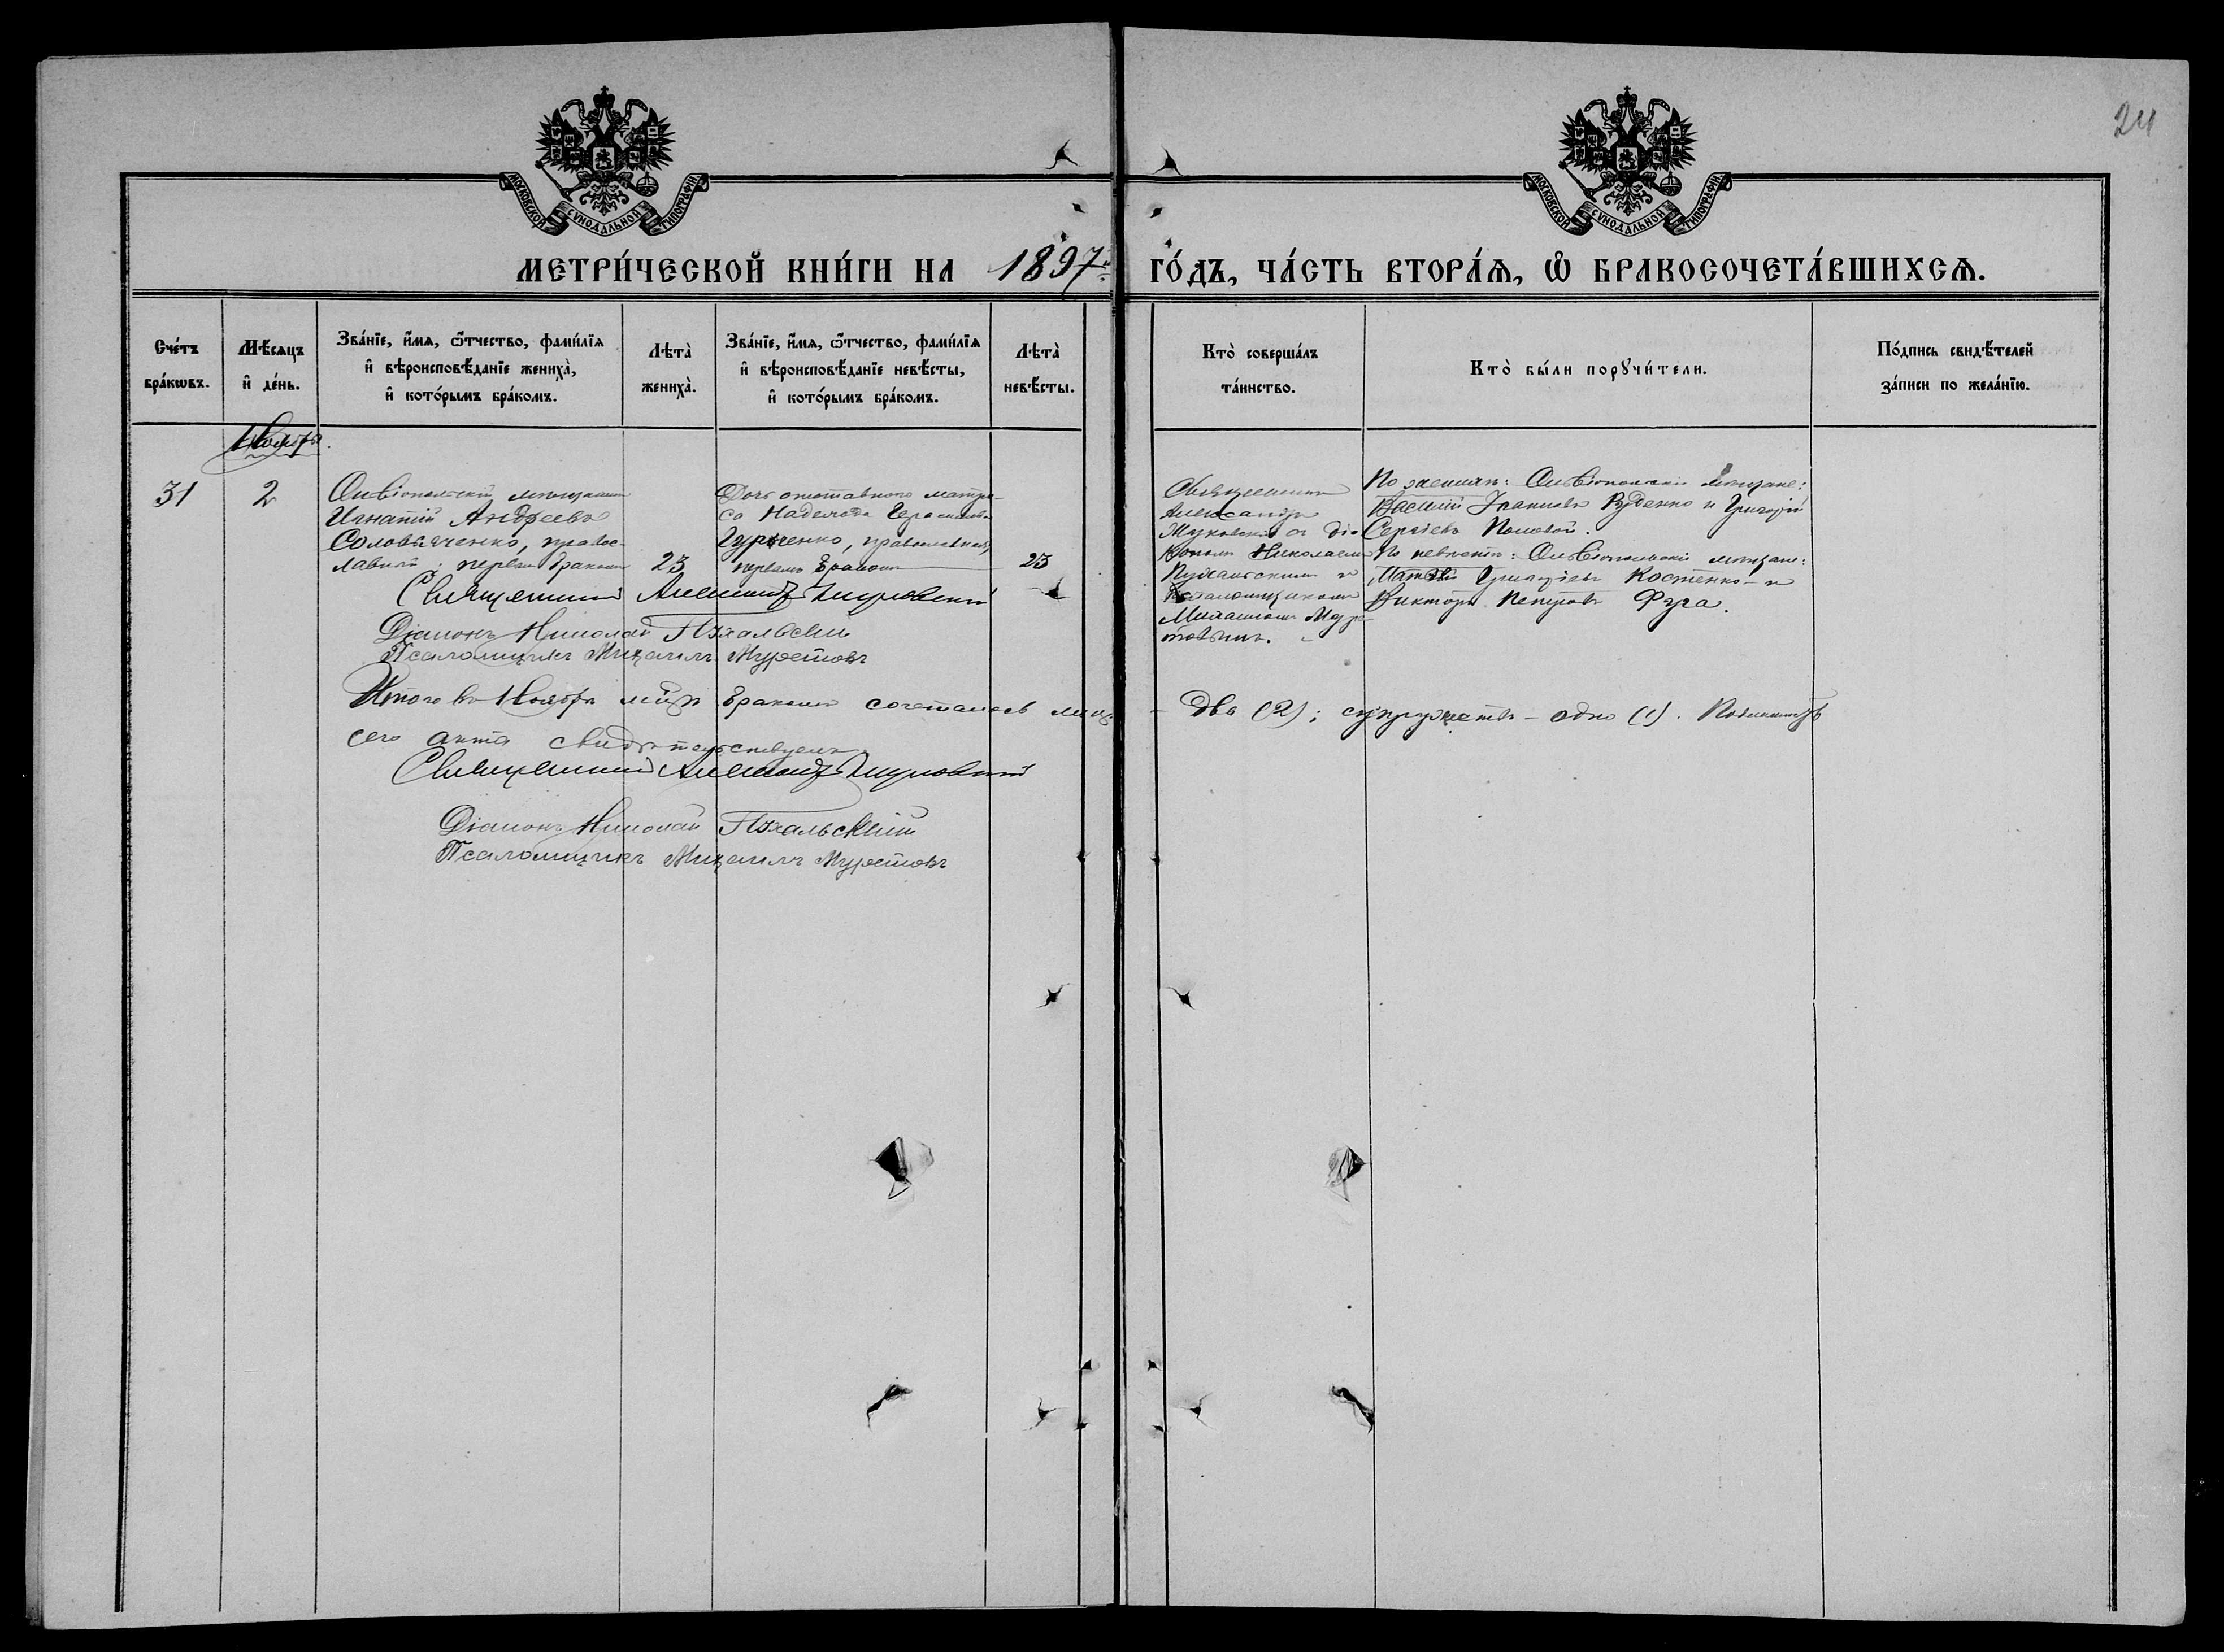 24
МОСКОВСКОЙ СѴНОДАЛЬНОЙ ТИПОГРАФІИ
МОСКОВСКОЙ СѴНОДАЛЬНОЙ ТИПОГРАФІИ
МЕТРИ́ЧЕСКОЙ КНИ́ГИ НА 1897й ГО́ДЪ, ЧА́СТЬ ВТОРА́Ѧ, Ѽ БРАКОСОЧЕТА́ВШИХСѦ.
Сче́тъ бра́кωвъ.
Мѣ́сѧцъ и҆ де́нь.
Зва́нїе, и҆́мѧ, ѻ҆́тчество, фами́лїѧ и҆ вѣроисповѣ́данїе жениха̀, и҆ кото́рымъ бра́комъ.
Лѣта̀ жениха̀.
Зва́нїе, и҆́мѧ, ѻ҆́тчество, фами́лїѧ и҆ вѣроисповѣ́данїе невѣ́сты, и҆ кото́рымъ бра́комъ.
Лѣта̀ невѣ́сты.
Кто̀ соверша́лъ та́инство.
Кто̀ бы́ли порꙋчи́тели.
По́дпись свидѣ́телей за́писи по жела́нїю.
Ноября
31
2
Ольвіопольскій мѣщанинъ
Игнатій Андреевъ
Соловьяченко, правос-
лавный; первымъ бракомъ
23
Дочь отставного матро-
са Надежда Герасимова
Гурченко, православная,
первымъ бракомъ
23
Священникъ
Александръ
Жуковскій съ діа-
кономъ Николаемъ
Пухальскимъ и
псаломщикомъ
Михаиломъ Муре-
товымъ.
По женихѣ: Ольвіопольскіе мѣщане:
Василій Ивановъ Руденко и Григорій
Сергіевъ Полевой.
По невѣстѣ: Ольвіопольскіе мѣщане:
Матѳей Григорьевъ Костенко и
Викторъ Петровъ Фуга.
Священникъ Александръ Жуковскій
Діаконъ Николай Пухальскій
Псаломщикъ Михаилъ Муретовъ
Итого въ Ноябрѣ мѣ-цѣ бракомъ сочеталось лицъ - два (2); супружествъ - одно (1). Подлинность
сего акта свидѣтельствуемъ
Священникъ Александръ Жуковскій
Діаконъ Николай Пухальскій
Псаломщикъ Михаилъ Муретовъ